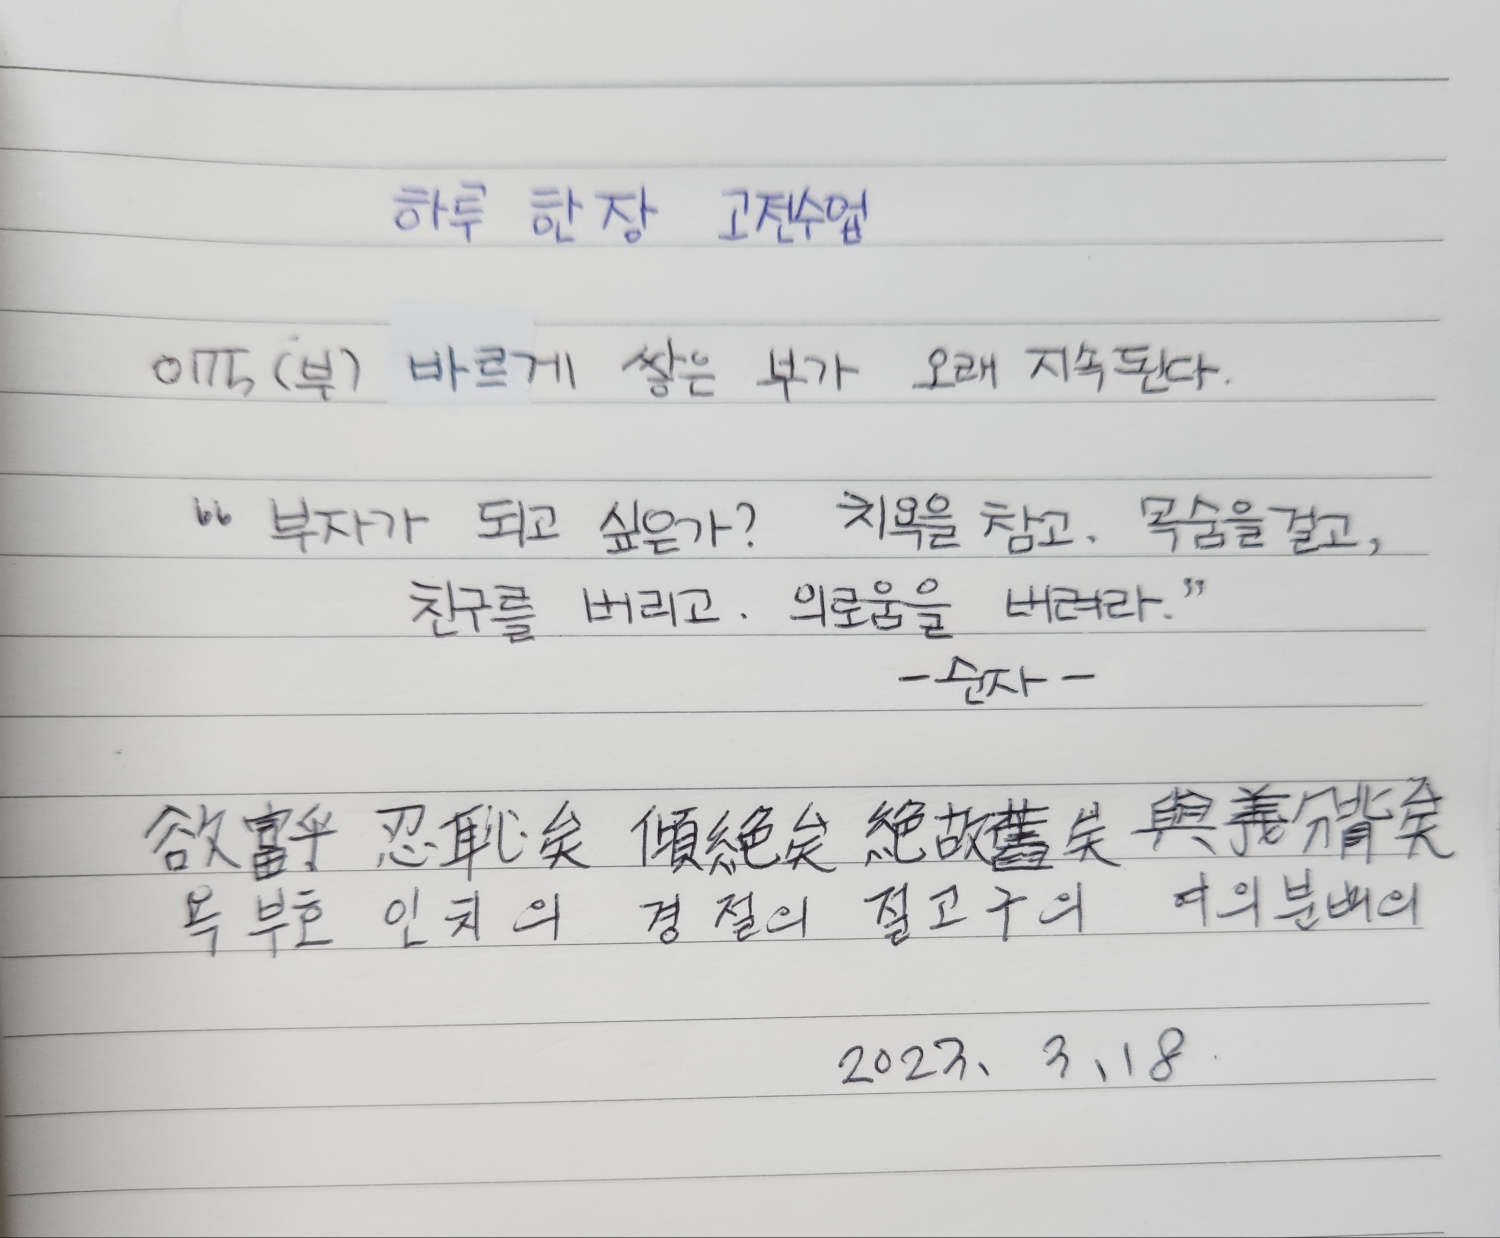 하루 한 장 고전수업
075 (부) 바르게 쌓은 부가 오래 지속된다.
“ 부자가 되고 싶은가? 치욕을 참고. 목숨을 걸고,
친구를 버리고. 의로움을 버려라.”
- 순자 -
欲富乎 忍恥矣 傾絕矣 絕故舊矣 與義分背矣
욕 부호 인 치 의 경 절의 절고구의 여의분배의
2023. 3.18